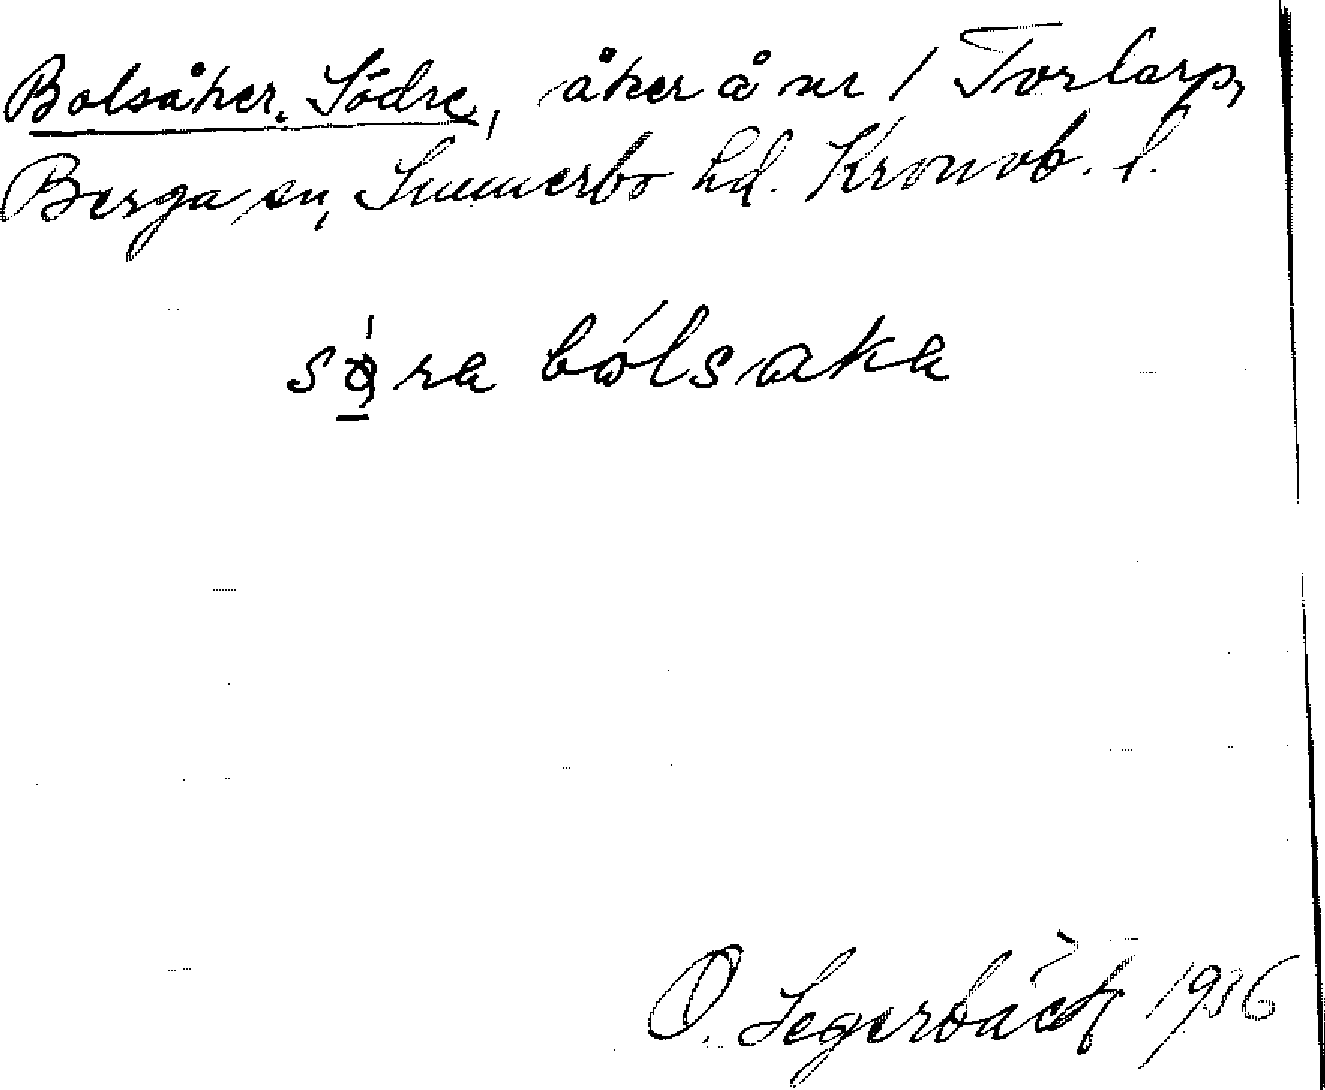 Bolsåker, Södre, åker å nr 1 Torlarp,
Berga sn, Sunnerbo hd. Kronob. l.
sø̱̍ra bólsaka
O. Segerbäck 1936